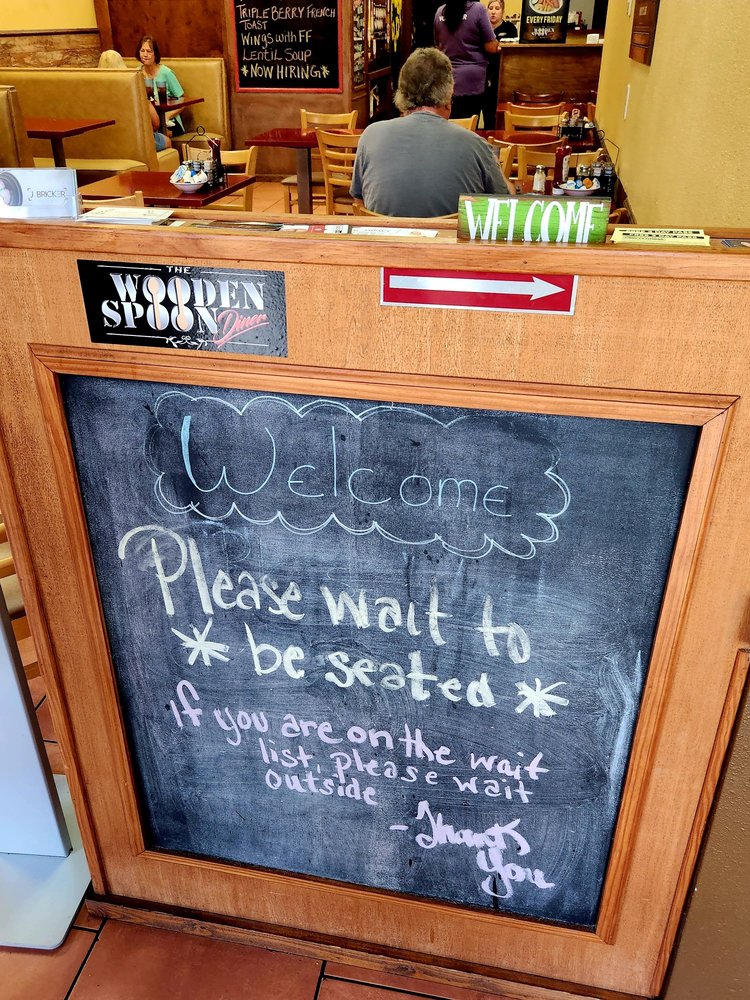 TRIPLE BERRY FRENCH
TOAST
WINGS WITH FF
LENTIL SOUP
*NOW HIRING*
EVERY FRIDAY
J BRICKER
WELCOME
THE
WOODEN
SPOON
Diner
Welcome
Please wait to
* be seated *
If you are on the wait
list, please wait
outside
- Thank
you